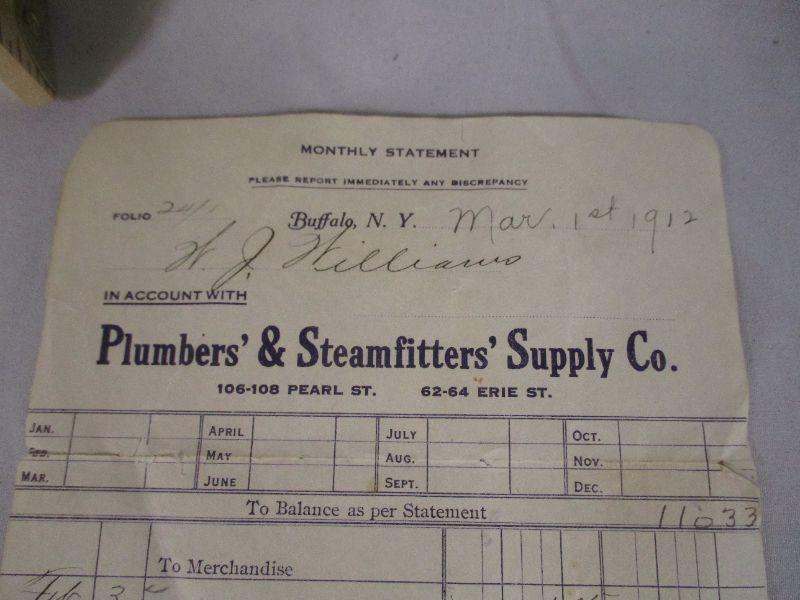 MONTHLY STATEMENT
PLEASE REPORT IMMEDIATELY ANY DISCREPANCY
FOLIO 24/1 Buffalo, N. Y. Mar. 1st 1912
W. J. Williams
IN ACCOUNT WITH
Plumbers' & Steamfitters' Supply Co.
106-108 PEARL ST. 62-64 ERIE ST.
JAN. APRIL JULY OCT.
FEB. MAY AUG. NOV.
MAR. JUNE SEPT. DEC.
To Balance as per Statement 110 33
To Merchandise
Feb 3